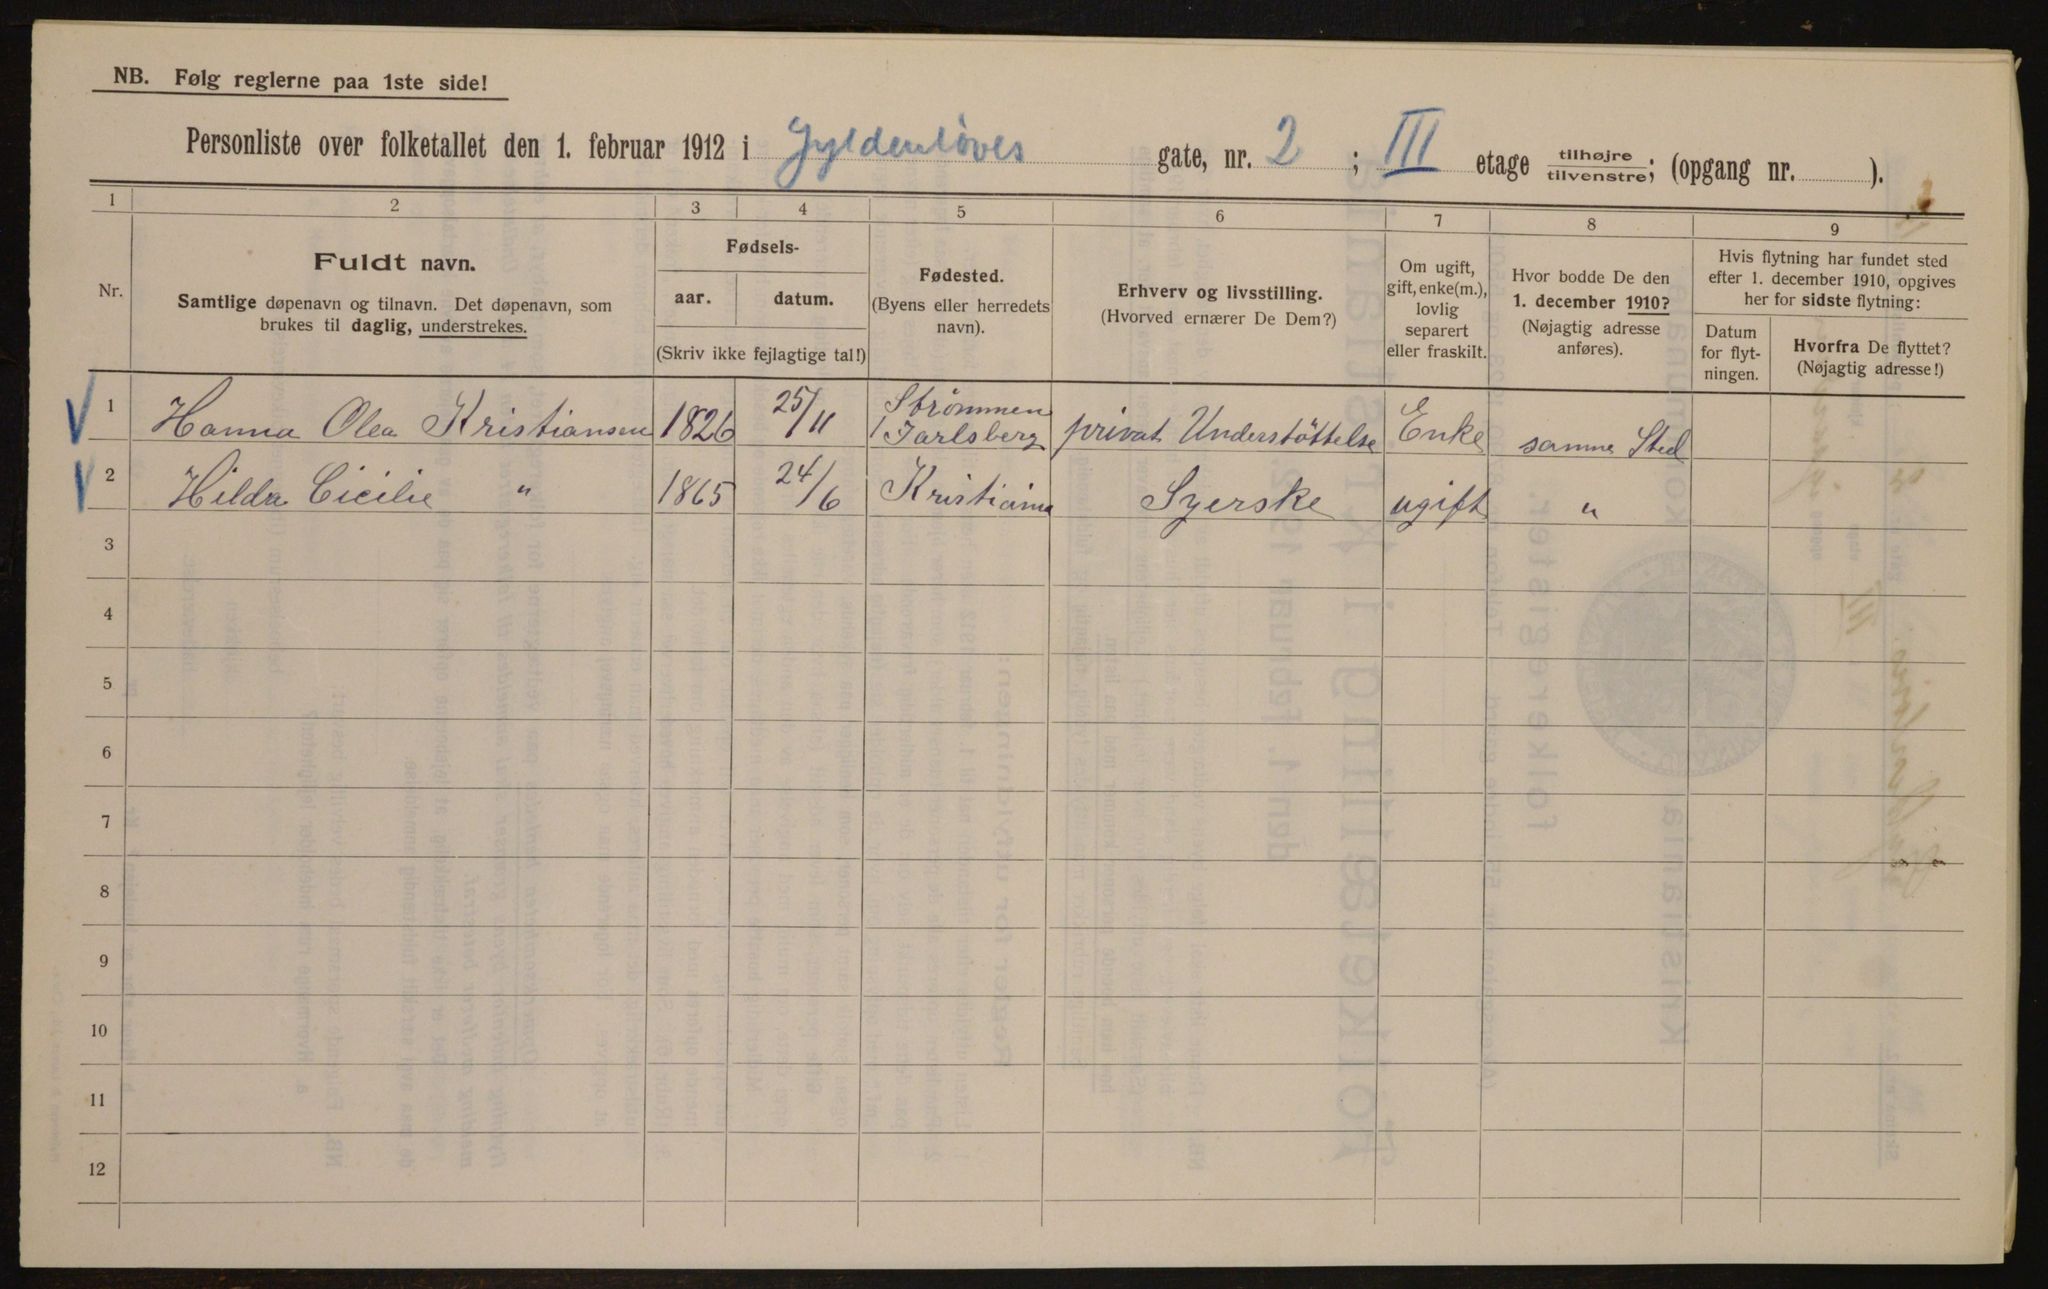 NB. Følg reglerne paa 1ste side!
Personliste over folketallet den 1. februar 1912 i Gyldenløves gate, nr. 2 ; III etage tilhøjre tilvenstre; (opgang nr. ).
1 2 3 4 5 6 7 8 9
Nr.
Fuldt navn.
Samtlige døpenavn og tilnavn. Det døpenavn, som
brukes til daglig, understrekes.
Fødsels-
aar. datum.
(Skriv ikke fejlagtige tal!)
Fødested.
(Byens eller herredets
navn).
Erhverv og livsstilling.
(Hvorved ernærer De Dem?)
Om ugift,
gift, enke(m.),
lovlig
separert
eller fraskilt.
Hvor bodde De den
1. december 1910?
(Nøjagtig adresse
anføres).
Hvis flytning har fundet sted
efter 1. december 1910, opgives
her for sidste flytning:
Datum
for flyt-
ningen.
Hvorfra De flyttet?
(Nøjagtig adresse!)
1 Hanna Olea Kristiansen 1826 25/11 Strømmen / Jarlsberg privat Understöttelse Enke samme Sted
2 Hilda Cicilie " 1865 24/6 Kristiania Syerske ugift "
3
4
5
6
7
8
9
10
11
12